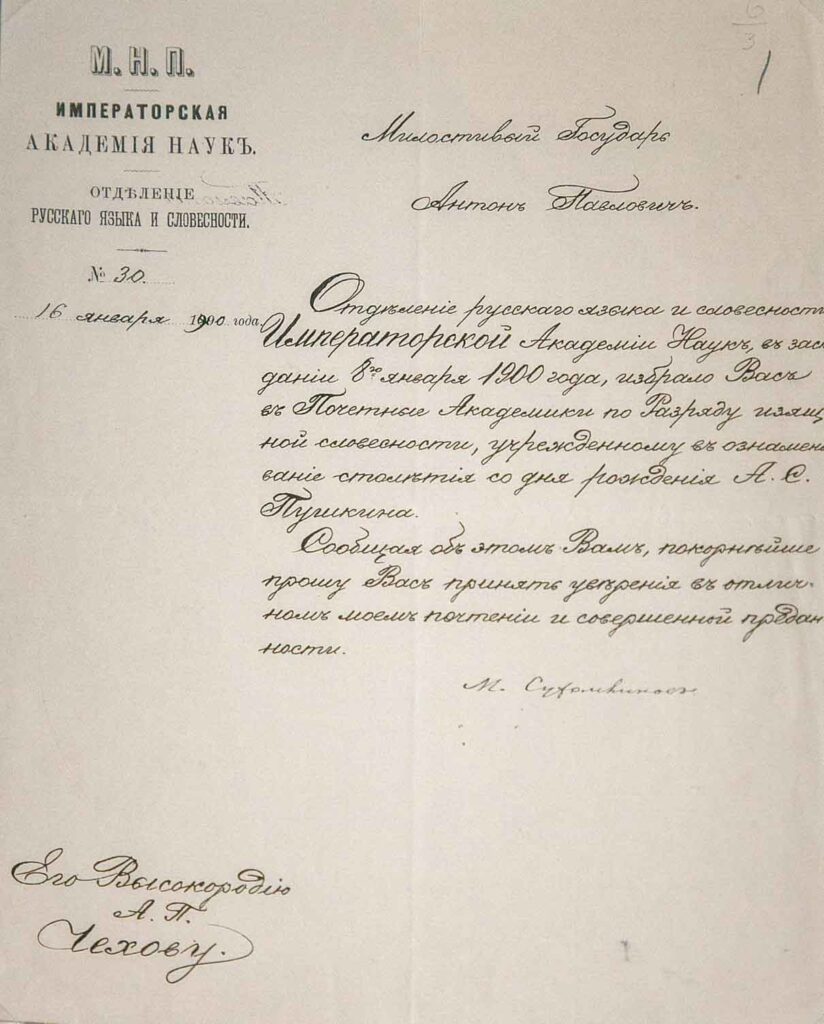 6
3
1
М. Н. П.
ИМПЕРАТОРСКАЯ
АКАДЕМІЯ НАУКЪ.
ОТДѢЛЕНІЕ
РУССКАГО ЯЗЫКА И СЛОВЕСНОСТИ.
№ 30.
16 января 1900 года.
Милостивый Государь
Антонъ Павловичъ.
Отдѣленіе русскаго языка и словесности
Императорской Академіи Наукъ, въ засѣ
даніи 8го января 1900 года, избрало Васъ
въ Почетные Академики по Разряду изящ
ной словесности, учрежденному въ ознамено
ваніе столѣтія со дня рожденія А. С.
Пушкина.
Сообщая объ этомъ Вамъ, покорнѣйше
прошу Васъ принять увѣренія въ отлич-
номъ моемъ почтеніи и совершенной предан
ности.
М. Сухомлиновъ
Его Высокородію
А. П.
Чехову.